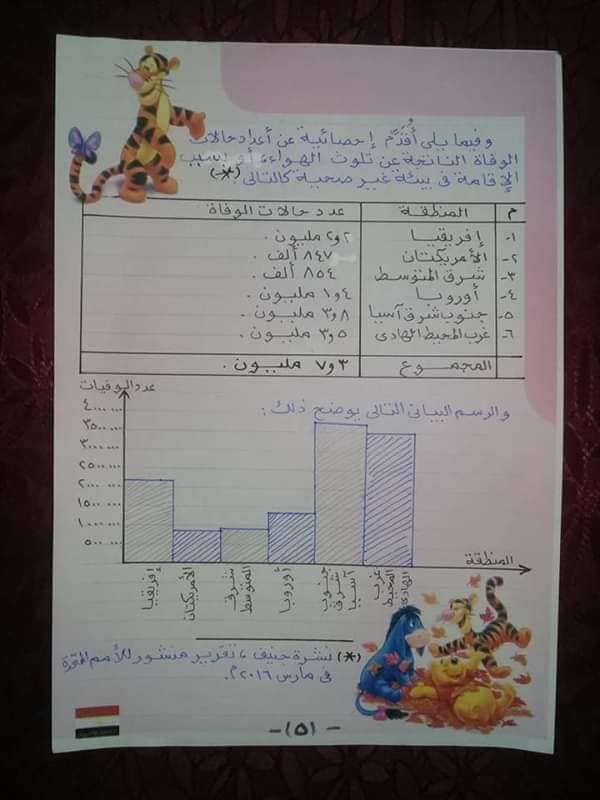 وفيما يلى أُقدِّم إحصائية عن أعداد حالات
الوفاة الناتجة عن تلوث الهواء، أو بسبب
الإقامة فى بيئة غير صحية كالتالى (*)
م المنطقة عدد حالات الوفاة
١- إفريقيا ٢و٢ مليون.
٢- الأمريكتان ٨٤٧ ألف.
٣- شرق المتوسط ٨٥٤ ألف.
٤- أوروبا ٤و١ مليون.
٥- جنوب شرق آسيا ٨و٣ مليون.
٦- غرب المحيط الهادى ٥و٣ مليون.
المجموع ٣و٧ مليون.
والرسم البيانى التالى يوضح ذلك:
عدد الوفيات
٤٠٠٠ ٠٠٠
٣٥٠٠ ٠٠٠
٣٠٠٠ ٠٠٠
٢٥٠٠ ٠٠٠
٢٠٠٠ ٠٠٠
١٥٠٠ ٠٠٠
١٠٠٠ ٠٠٠
٥٠٠ ٠٠٠
المنطقة
إفريقيا
الأمريكتان
شرق المتوسط
أوروبا
جنوب شرق آسيا
غرب المحيط الهادى
(*) نشرة جنيف، تقرير منشور للأمم المتحدة
فى مارس ٢٠١٦م.
-(٥١)-